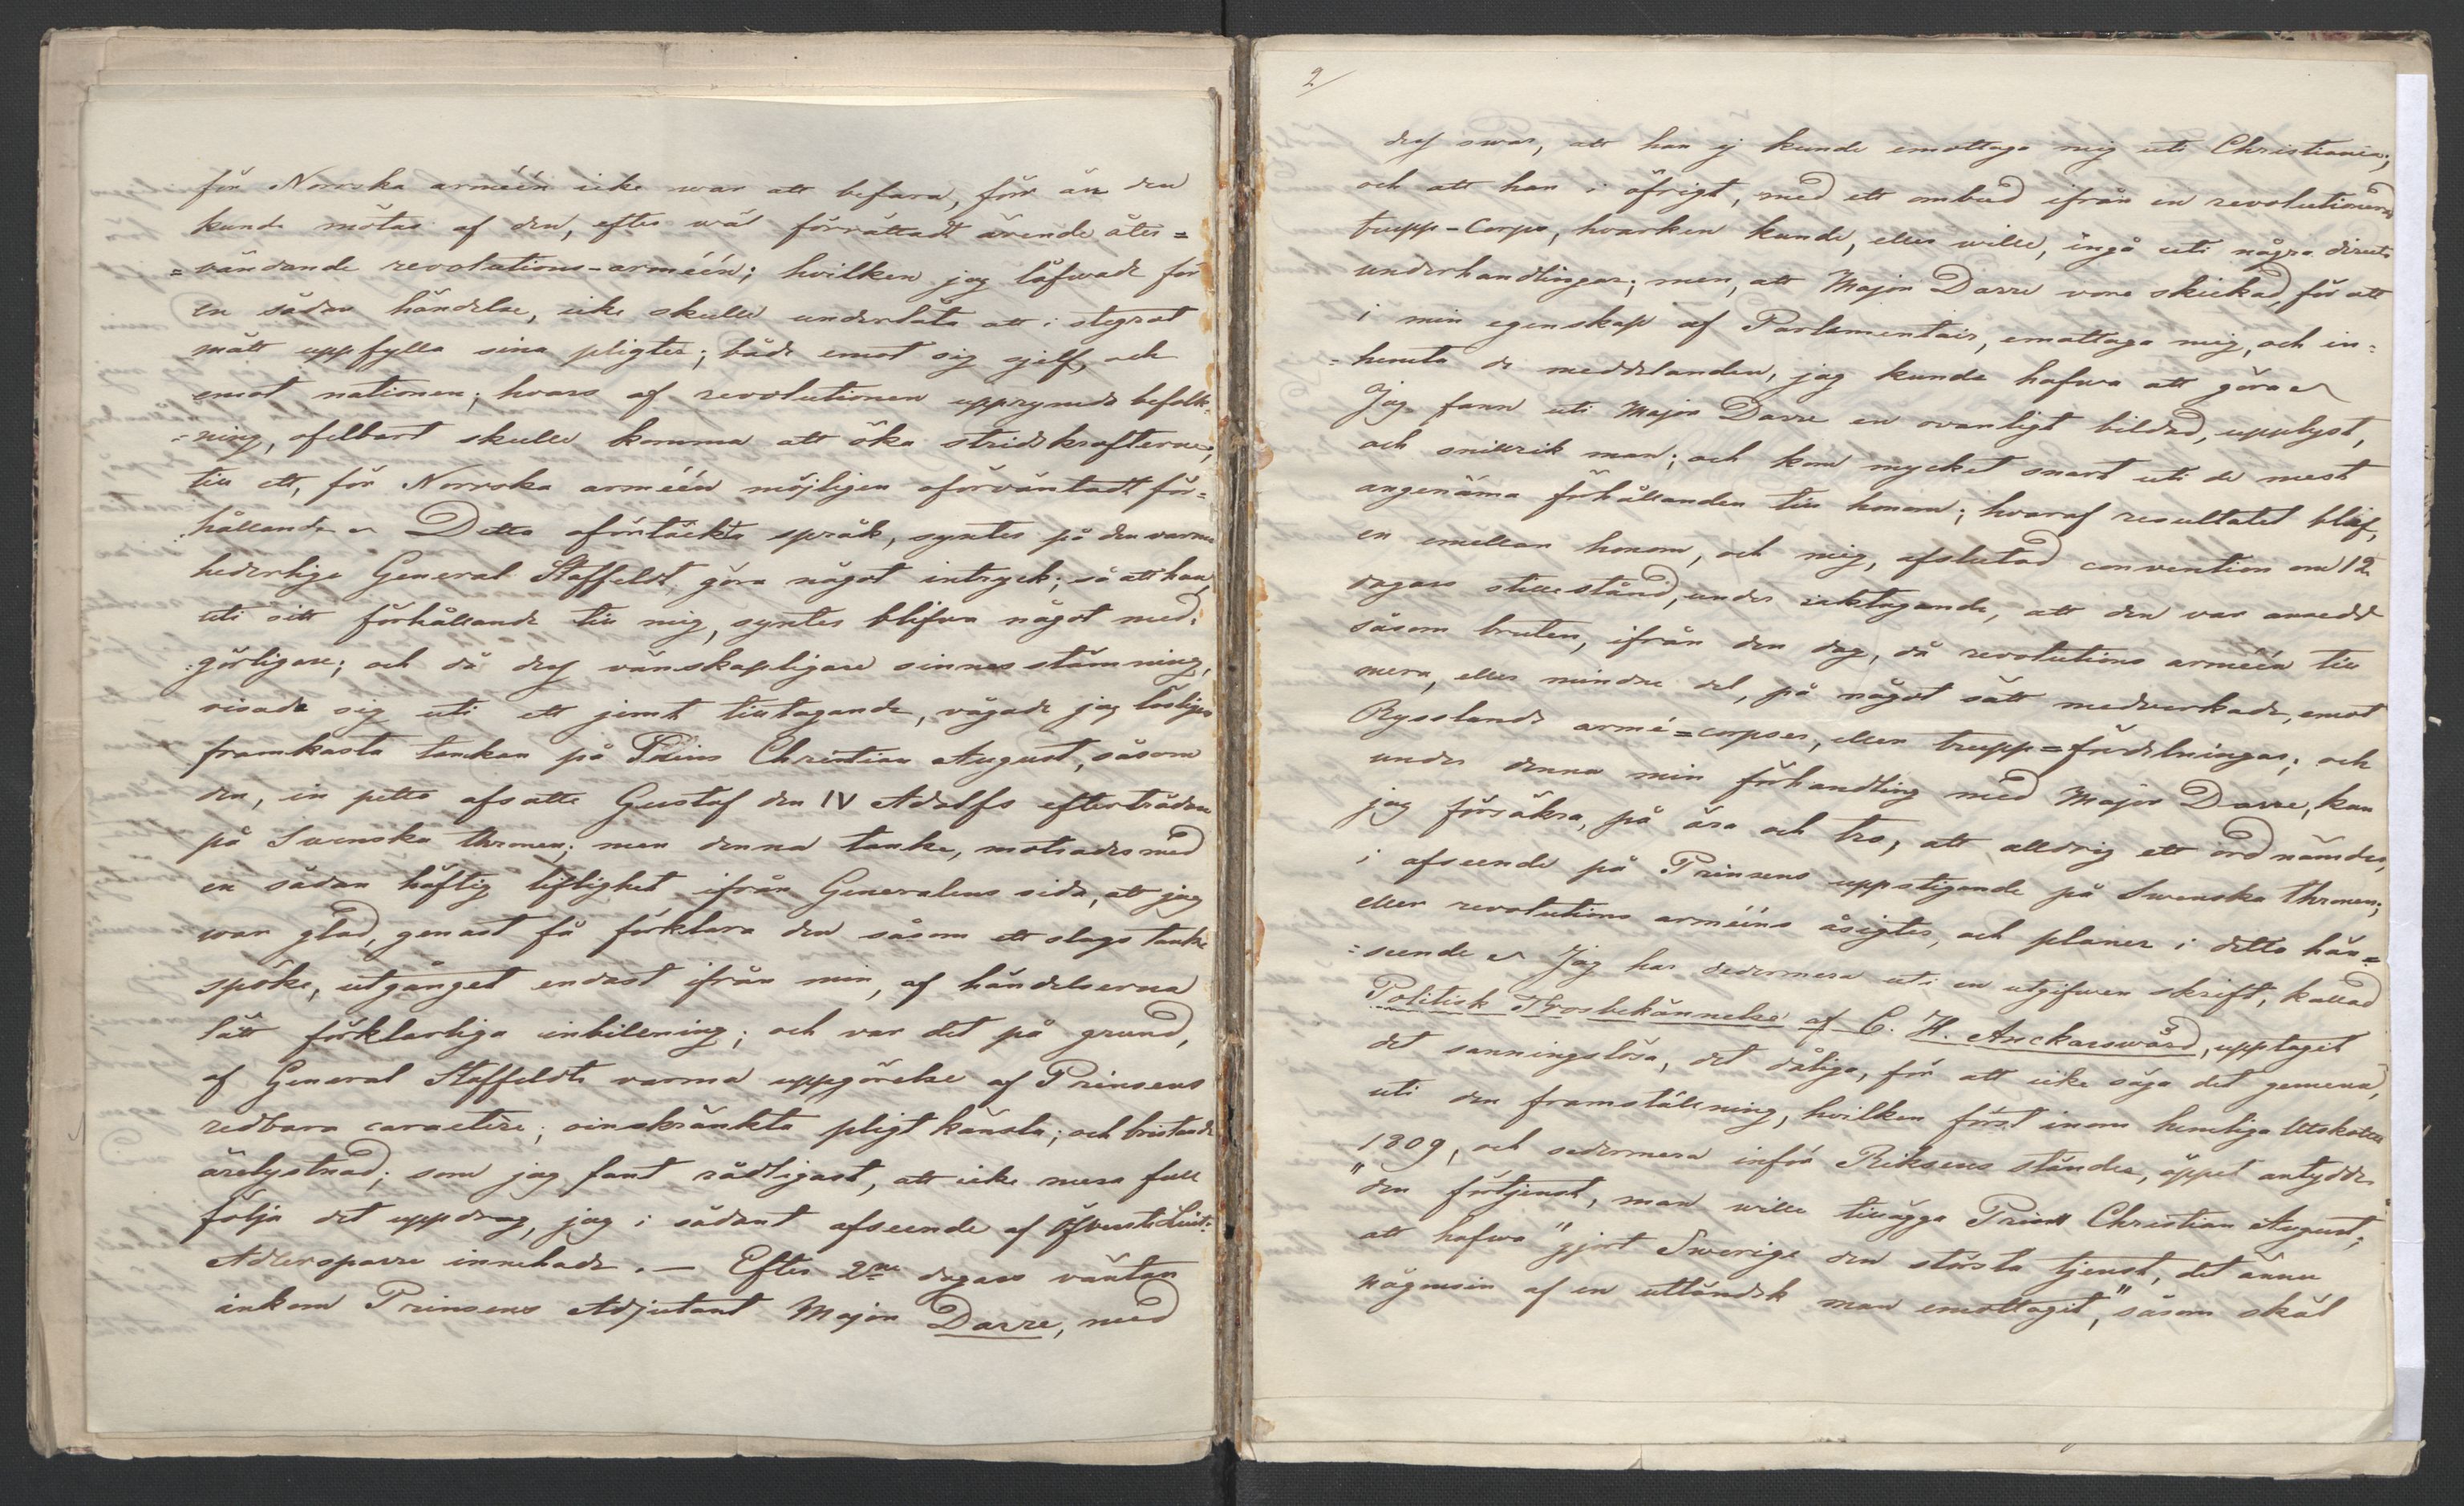 för Norrska arméen icke war att befara, förr än den
kunde mötas af den, efter wäl förrättadt ärende åter=
=vändande revolutions-arméen; hvilken jag låfwade för
en sådan händelse, icke skulle underlåta att i stegrat
mått uppfylla sina pligter; både emot sig sjelf, och
emot nationen; hvars af revolutionen upprymda befolk=
=ning, ofelbart skulle komma att öka stridskrafterne,
till ett, för Norrska arméen möjligen oförväntadt för=
hållande. Detta oförtäckta språk, syntes på den varme
hederlige General Staffeldt göra något intryck; så att han,
uti sitt förhållande till mig, syntes blifwa något med=
görligare; och då dess vänskapligare sinnesstämning,
visade sig uti ett jemt tilltagande, vågade jag lösligen
framkasta tanken på Prins Christian August, såsom
den, in petto afsatte Gustaf den IV Adolfs efterträdare
på Swenska thronen; men denna tanke, motsades med
en sådan häftig liflighet ifrån Generalens sida, att jag
war glad, genast få förklara den såsom ett slags tanke
spöke, utgånget endast ifrån min, af händelserna
lätt förklarliga inbillning; och var det på grund,
af General Staffeldts varma uppgörelse af Prinsens
redbara caractère; oinskränkta pligt känsla; och bristande
ärelystnad; som jag fant rådligast, att icke mera full
följa det uppdrag, jag i sådant afseende af Öfverste Lieut:
Adlersparre innehade. — Efter 2ne dagars väntan
inkom Prinsens Adjutant Major Darre, med
2/
dess swar, att han ej kunde emottaga mig uti Christiania;
och att han i öfrigt, med ett ombud ifrån en revolutionerad
trupp-Corps, hvarken kunde, eller wille, ingå uti några directa
underhandlingar; men, att Major Darre vore skickad, för att
i min egenskap af Parlamentair, emottaga mig, och in=
=hemta de meddelanden, jag kunde hafwa att göra.
Jag fann uti Major Darre en ovanligt bildad, upplyst,
och snillrik man; och kom mycket snart uti de mest
angenäma förhållanden till honom; hvaraf resultatet blef,
en emellan honom, och mig, afslutad convention om 12
dagars stillestånd, under iakttagande, att den var ansedd
såsom bruten, ifrån den dag, då revolutions arméen till
mera, eller mindre del, på något sätt medverkade, emot
Rysslands armé=corpser, eller trupp=fördelningar; och
under denna min förhandling med Major Darre, kan
jag försäkra, på ära och tro, att alldrig ett ord nämdes,
i afseende på Prinsens uppstigande på Swenska thronen;
eller revolutions arméens åsigter, och planer i detta hän=
=seende. Jag har sedermera uti en utgifwen skrift, kallad
Politisk Trosbekännelse af C. H. Anckarswärd, upptagit
det sanningslösa, det dåliga, för att icke säga det gemena,
uti den framställning, hvilken först inom hemliga Utskottet
1809, och sedermera inför Riksens ständer, öppet antydde
"den förtjenst, man wille tillägga Prins Christian August;
att hafwa "gjort Swerige den största tjenst, det ännu
någonsin af en utländsk man emottagit," såsom skäl